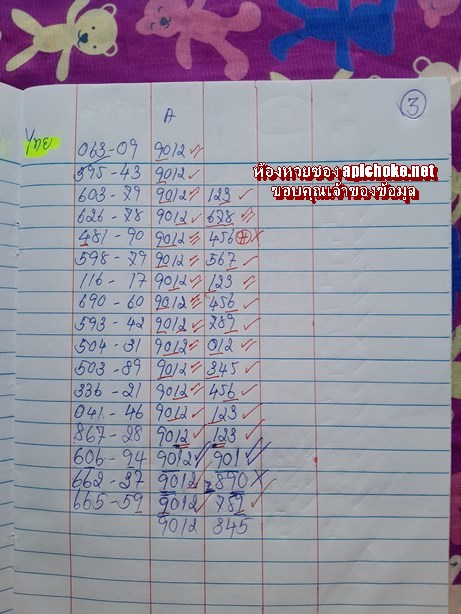 A
3
063-09 9012
395-43 9012
ห้องหวยซอง apichoke.net
ขอบคุณเจ้าของข้อมูล
603-79 9012 123
626-78 9012 678
481-90 9012 456 H
598-79 9012 567
116-17 9012 123
690-60 9012 456
593-42 9012 789
504-31 9012 012
503-89 9012 345
336-21 9012 456
041-46 9012 123
867-28 9012 123
606-94 9012 901
662-37 9012 890
665-59 9012 789
9012 345